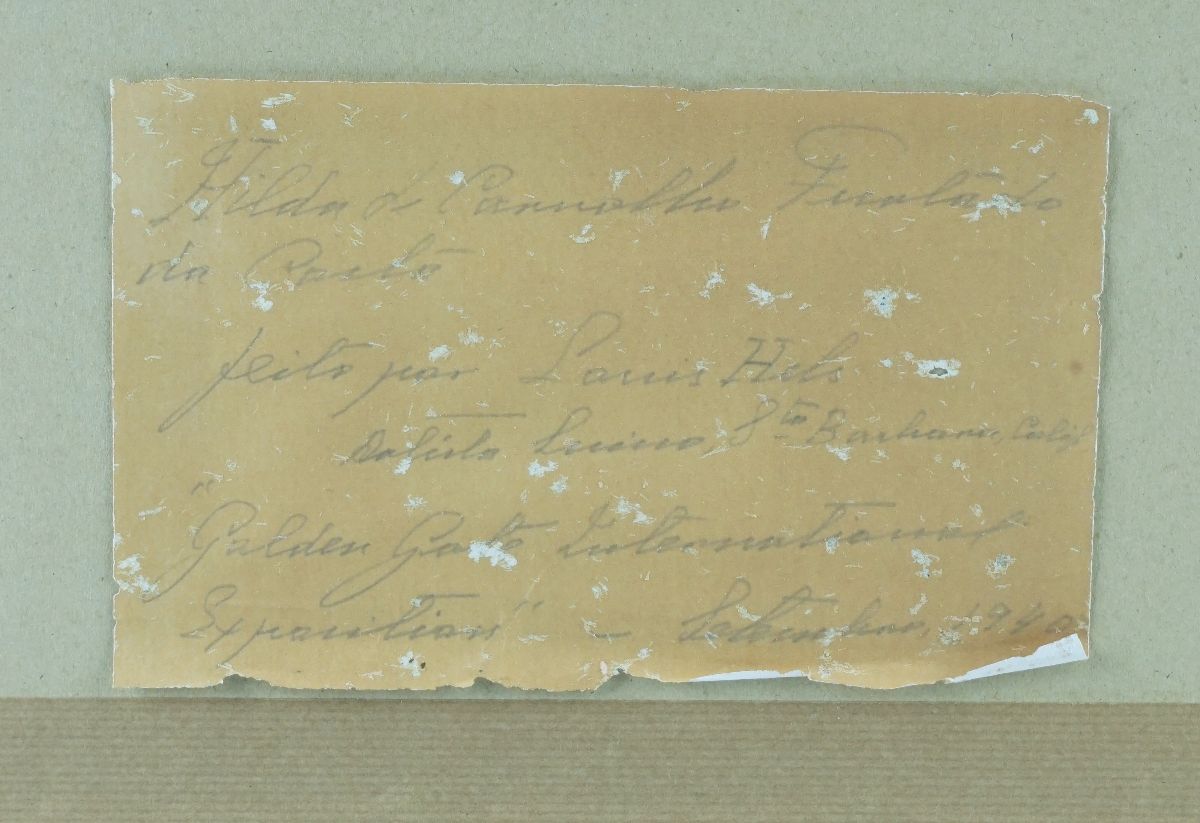 Hilda de Carvalho Furtado
da Costa
feito por Louis Hels
Sta Barbara, Calif
"Golden Gate International
Exposition" - Setembro, 1940